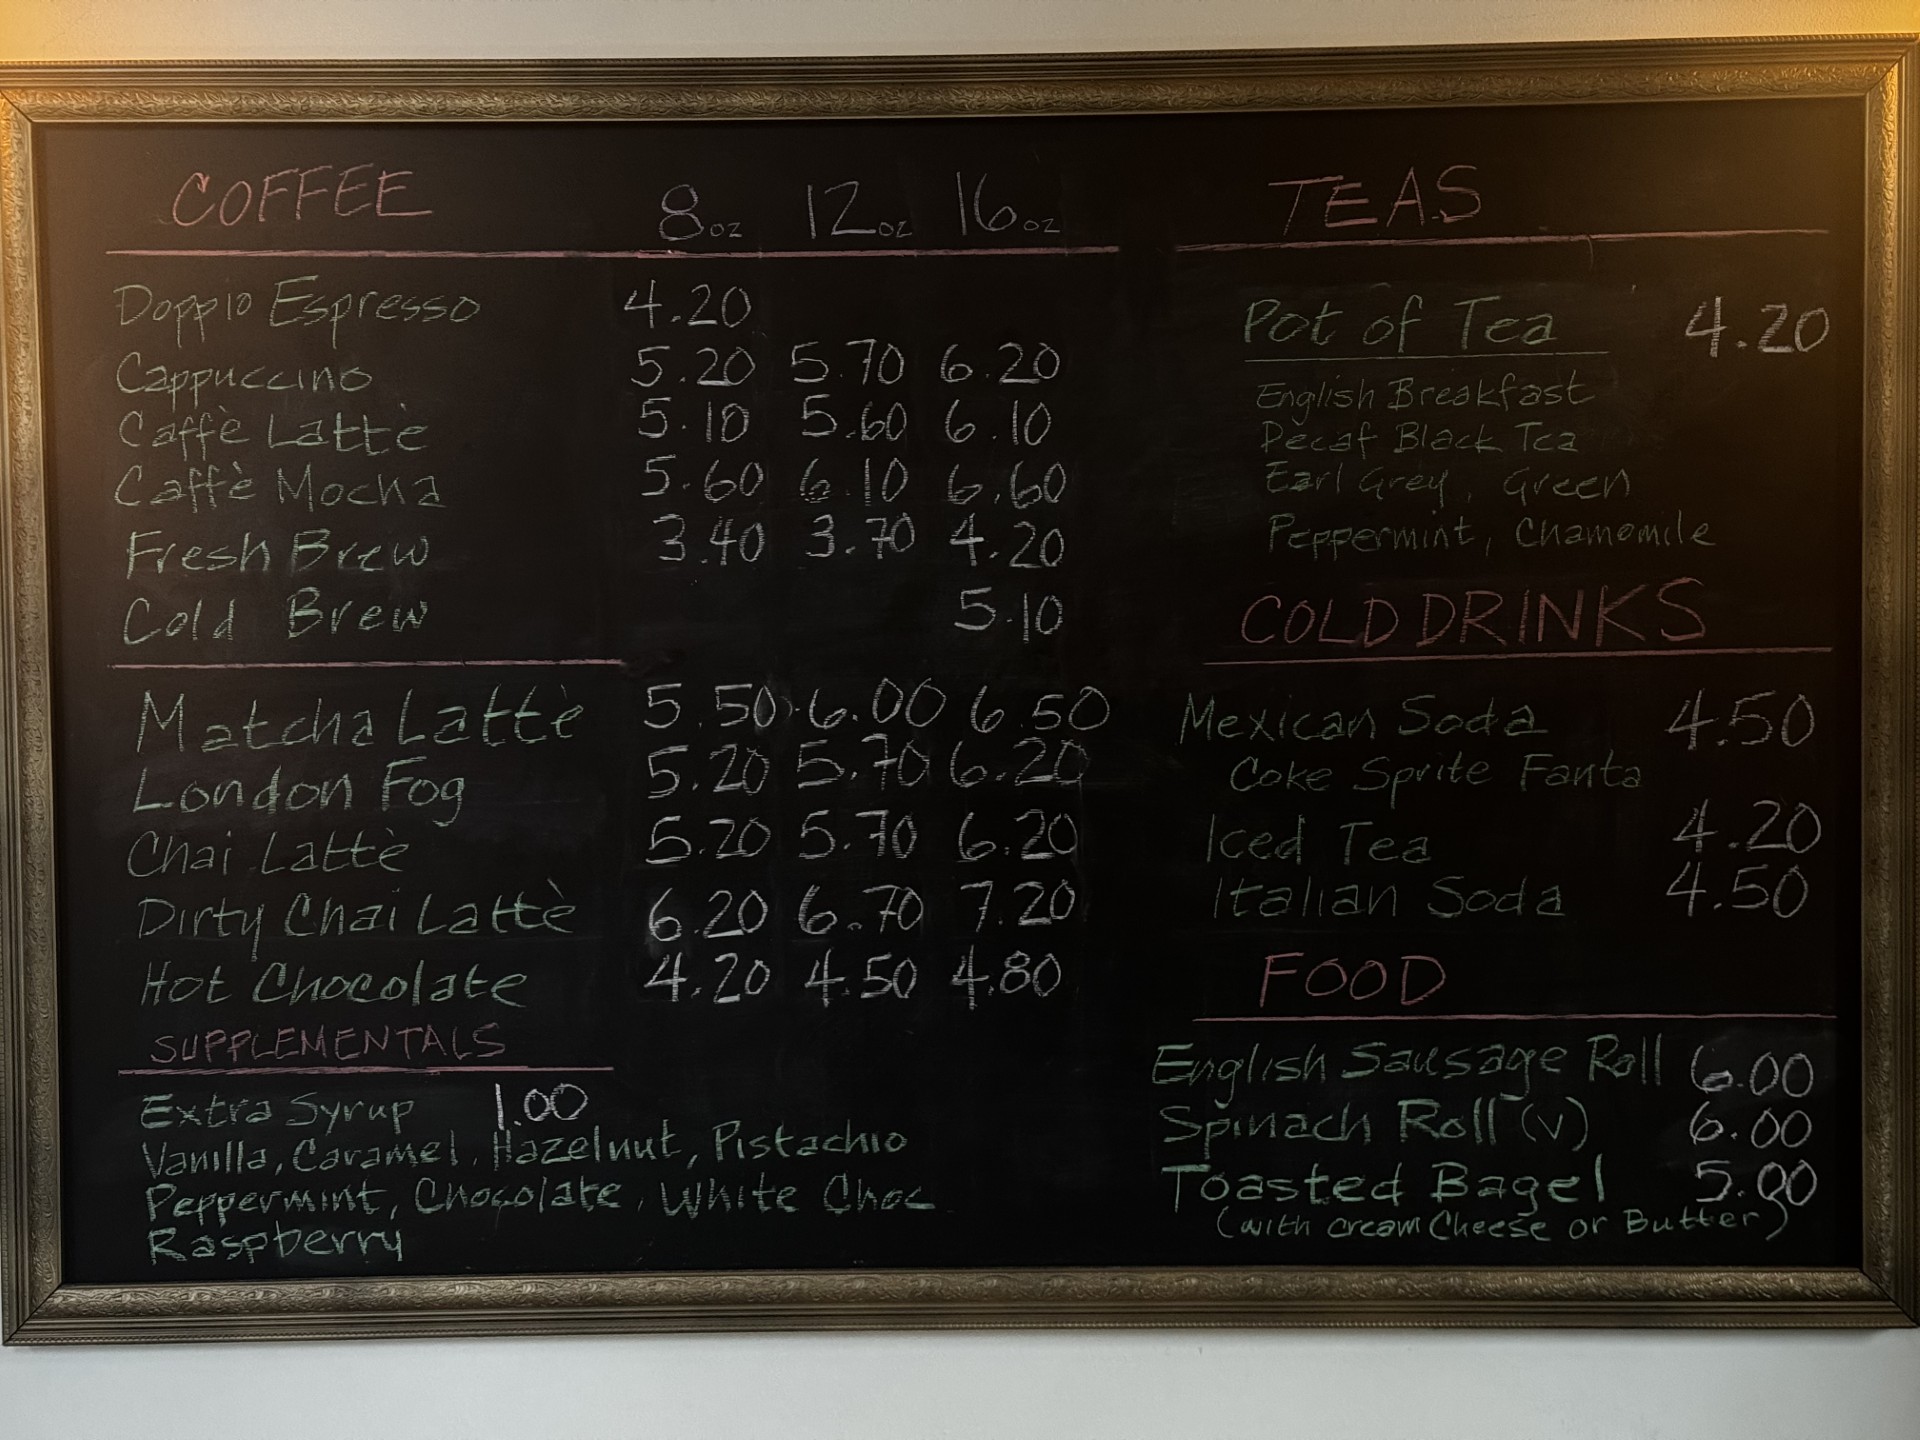 COFFEE 8oz 12oz 16oz
Doppio Espresso 4.20
Cappuccino 5.20 5.70 6.20
Caffè Lattè 5.10 5.60 6.10
Caffè Mocha 5.60 6.10 6.60
Fresh Brew 3.40 3.70 4.20
Cold Brew 5.10
Matcha Lattè 5.50 6.00 6.50
London Fog 5.20 5.70 6.20
Chai Lattè 5.20 5.70 6.20
Dirty Chai Lattè 6.20 6.70 7.20
Hot Chocolate 4.20 4.50 4.80
SUPPLEMENTALS
Extra Syrup 1.00
Vanilla, Caramel, Hazelnut, Pistachio
Peppermint, Chocolate, White Choc
Raspberry
TEAS
Pot of Tea 4.20
English Breakfast
Decaf Black Tea
Earl Grey, Green
Peppermint, Chamomile
COLD DRINKS
Mexican Soda 4.50
Coke Sprite Fanta
Iced Tea 4.20
Italian Soda 4.50
FOOD
English Sausage Roll 6.00
Spinach Roll (v) 6.00
Toasted Bagel 5.00
(with cream Cheese or Butter)